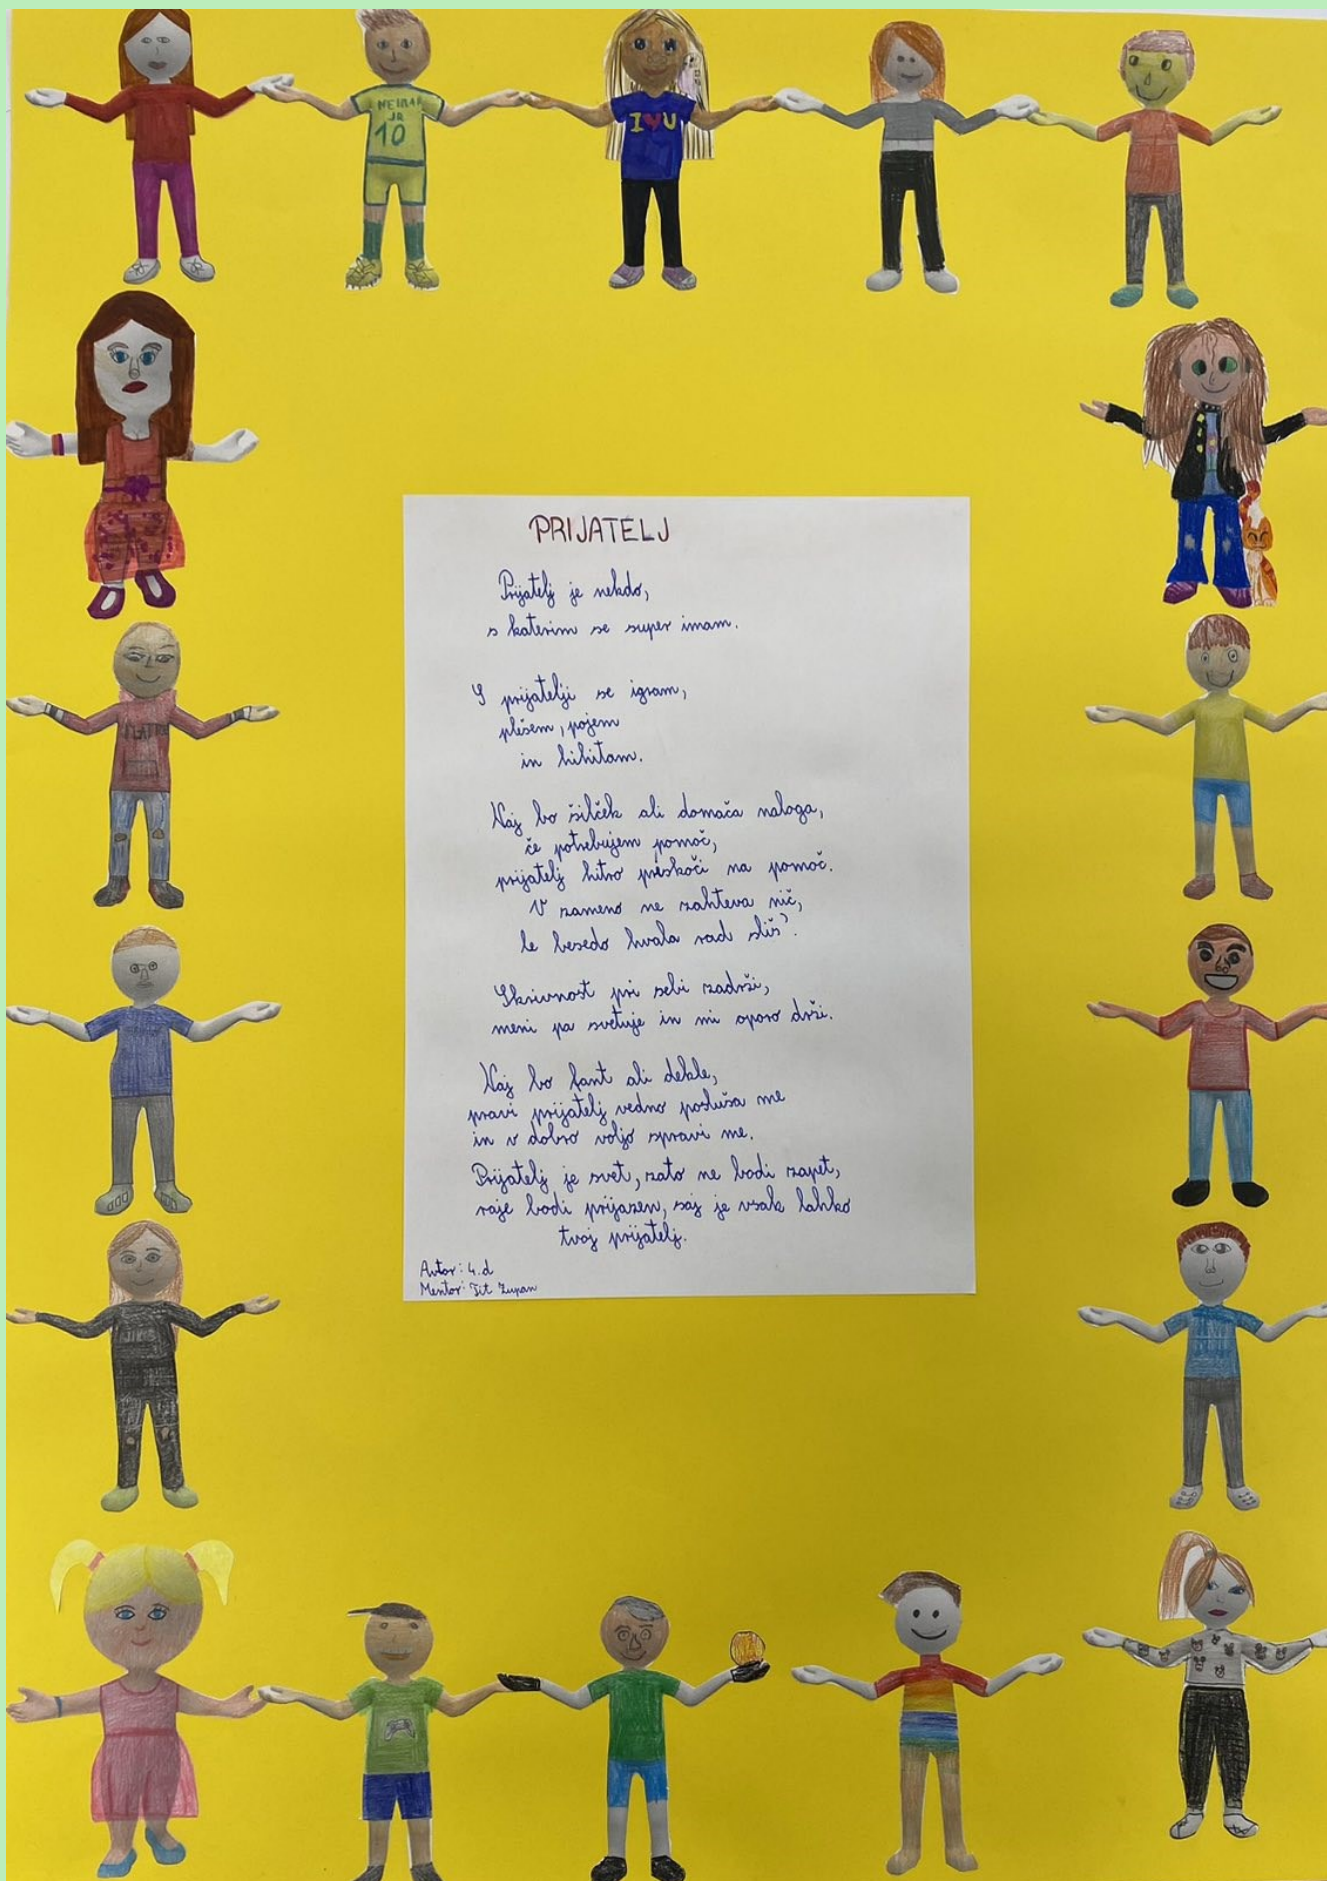 NEIMAR
JR
10
I ♥ U
PRIJATELJ
Prijatelj je nekdo,
s katerim se super imam.
S prijatelji se igram,
plešem, pojem
in hihitam.
Naj bo šilček ali domača naloga,
če potrebujem pomoč,
prijatelj hitro priskoči na pomoč.
V zameno ne zahteva nič,
le besedo hvala rad sliš'.
Skrivnost pri sebi zadrži,
meni pa svetuje in mi oporo drži.
Naj bo fant ali dekle,
pravi prijatelj vedno posluša me
in v dobro voljo spravi me.
Prijatelj je svet, zato ne bodi zapet,
raje bodi prijazen, saj je vsak lahko
tvoj prijatelj.
Avtor: 4.d
Mentor: Tit Zupan